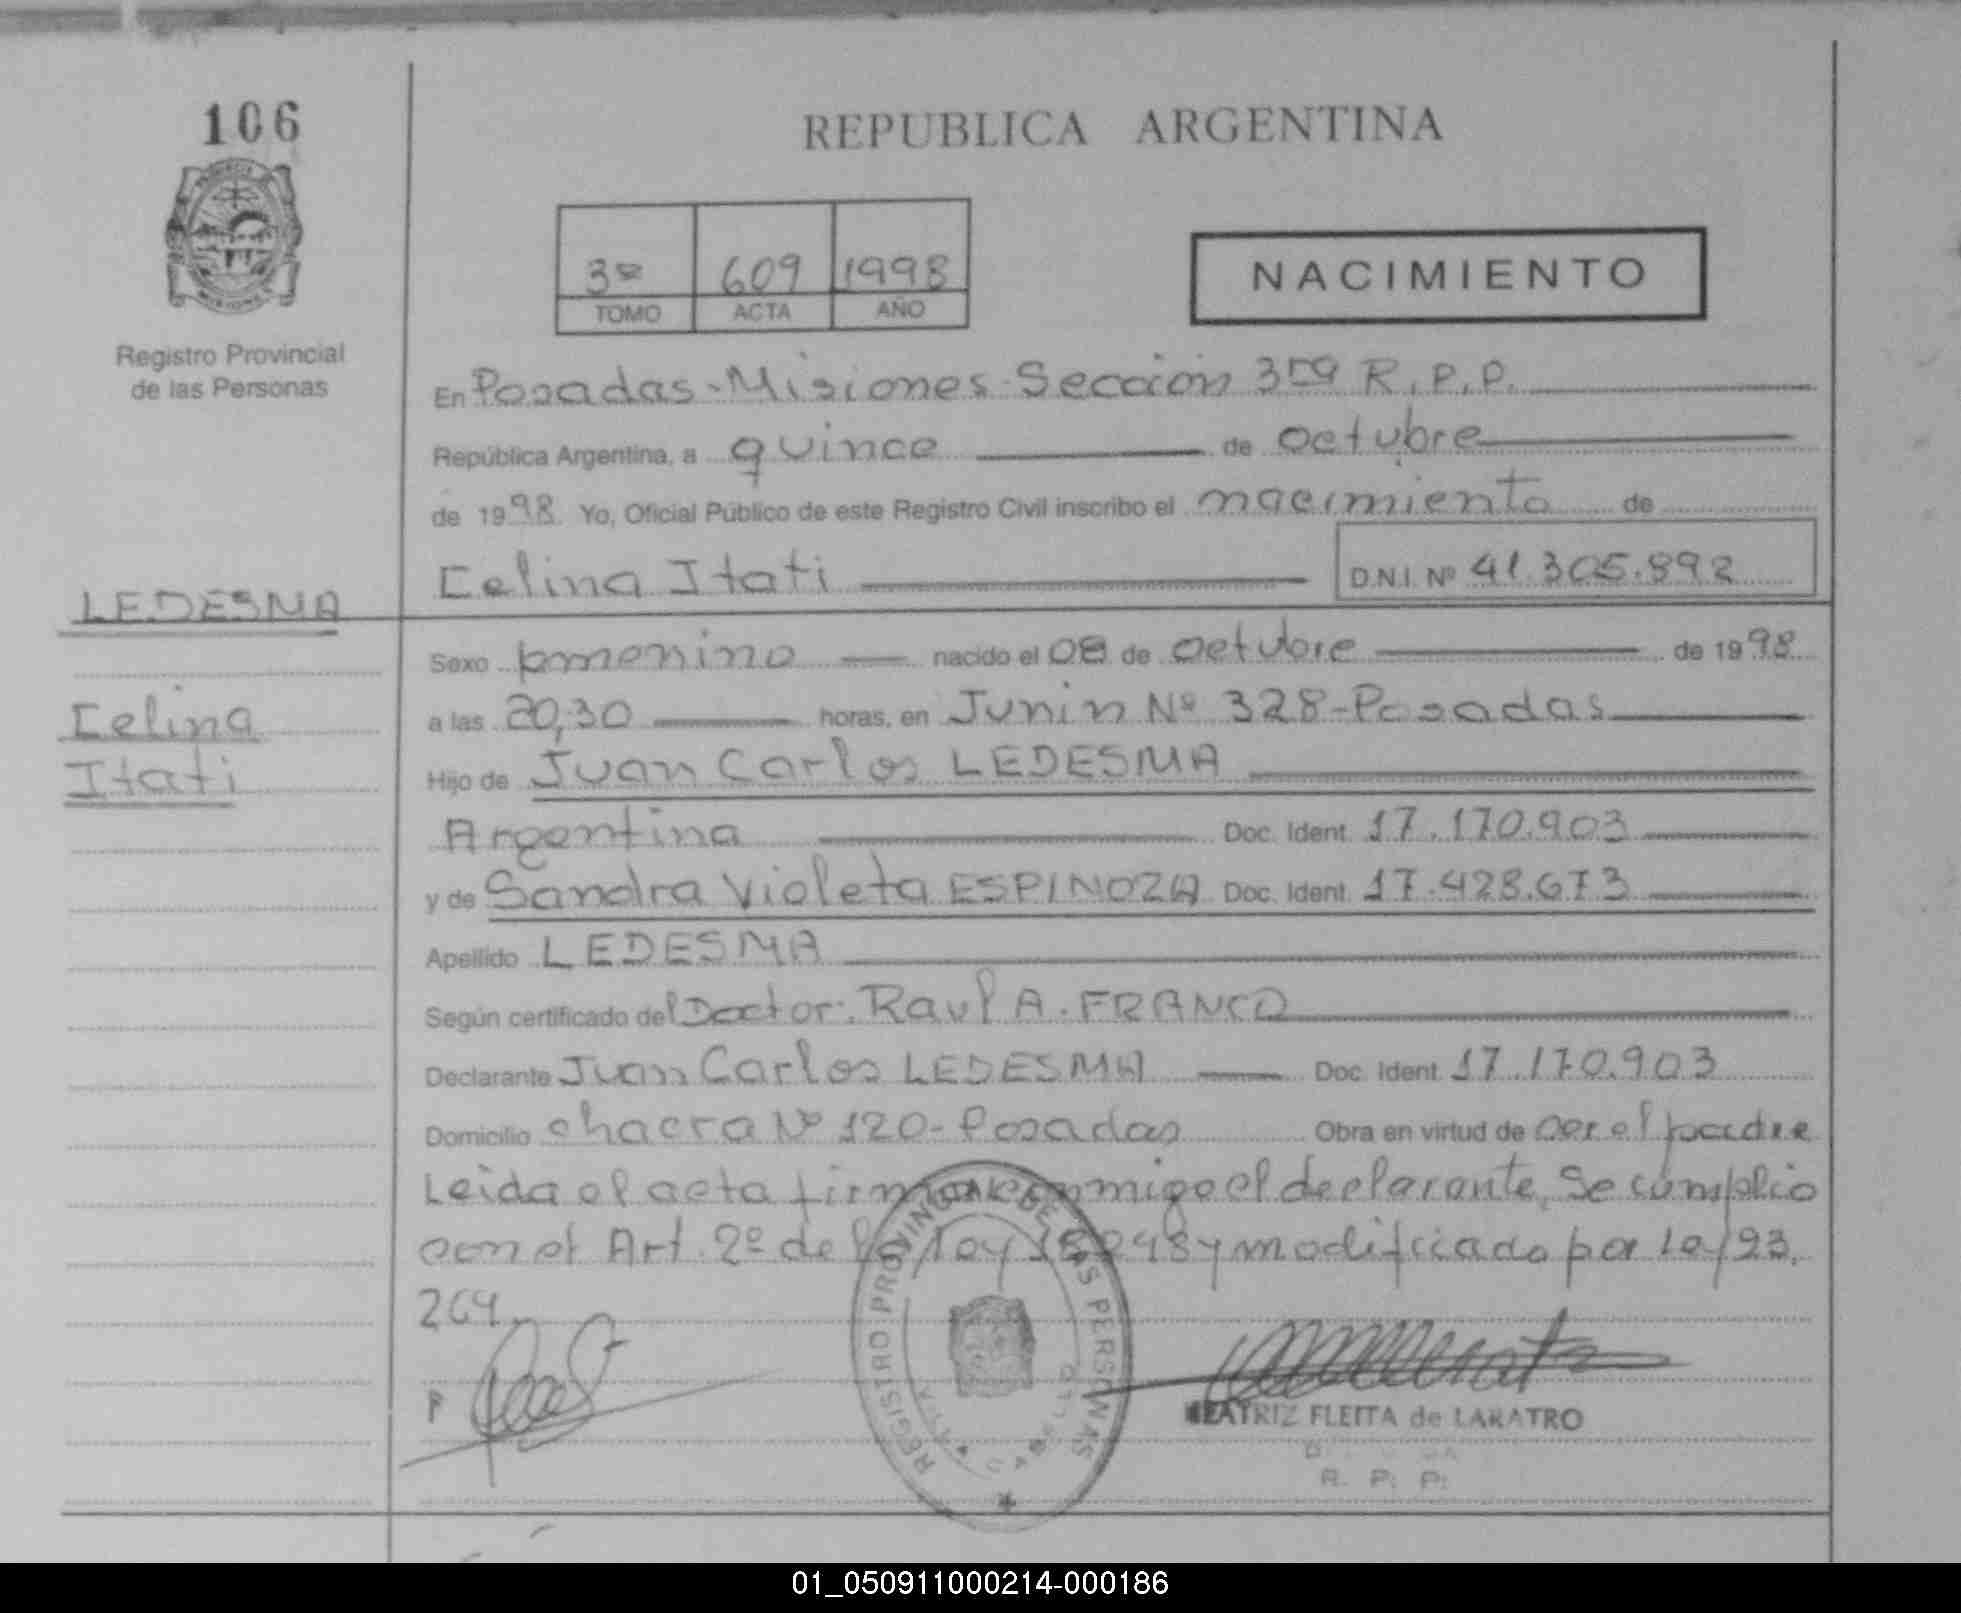 106
REPUBLICA ARGENTINA
3º 609 1998
TOMO ACTA AÑO
NACIMIENTO
Registro Provincial
de las Personas
En Posadas-Misiones-Sección 3ra R.P.P.
República Argentina, a quince de octubre
de 1998 Yo, Oficial Público de este Registro Civil inscribo el nacimiento de
Celina Itati D.N.I. Nº 41.305.892
LEDESMA
Sexo femenino nacido el 08 de octubre de 1998
Celina
a las 20,30 horas, en Junin Nº 328-Posadas
Itati
Hijo de Juan Carlos LEDESMA
Argentina Doc. Ident. 17.170.903
y de Sandra Violeta ESPINOZA Doc. Ident. 17.428.673
Apellido LEDESMA
Según certificado del Doctor: Raul A. FRANCO
Declarante Juan Carlos LEDESMA Doc. Ident. 17.170.903
Domicilio chacra Nº 120-Posadas Obra en virtud de ser el padre
Leida el acta firma conmigo el declarante. Se cumplio
con el Art. 2º de la ley 18248 y modificiado por la/23.
264.
P
REGISTRO PROVINCIAL DE LAS PERSONAS
BEATRIZ FLEITA de LARATRO
R. P. P.
01_050911000214-000186